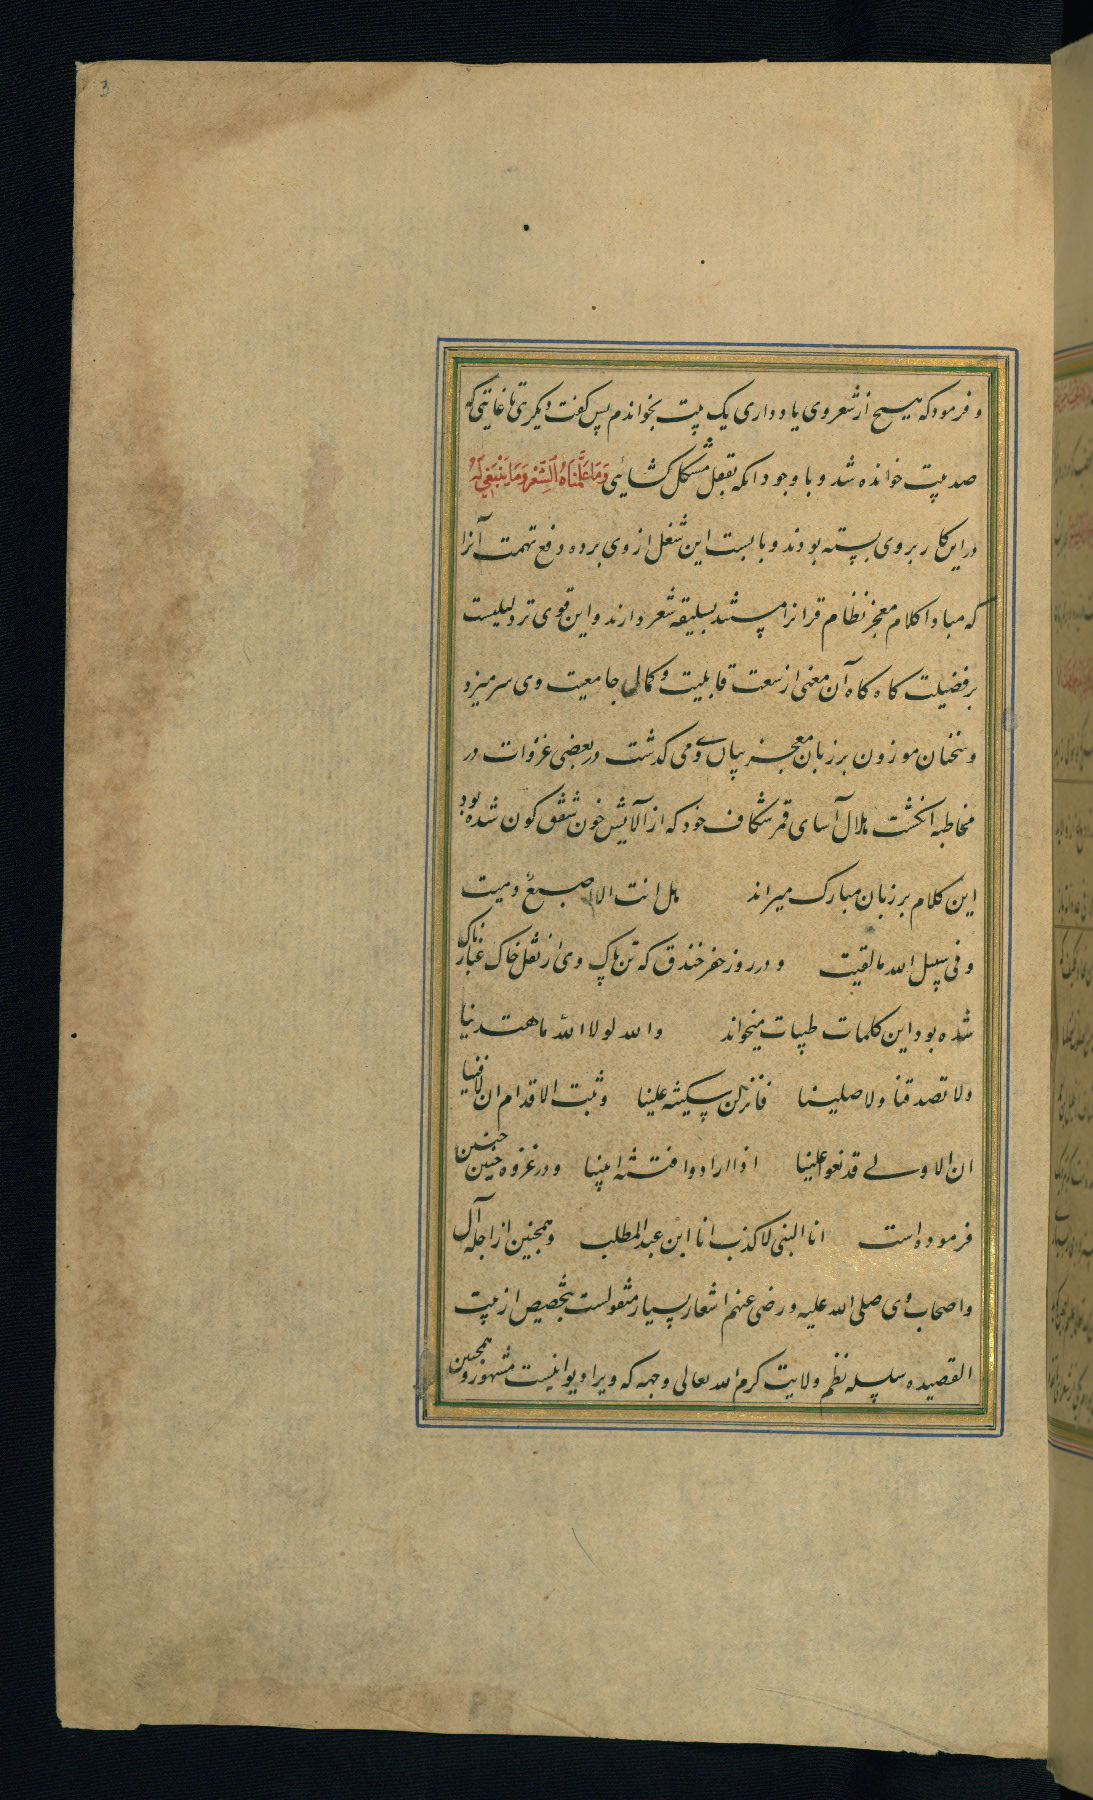 3
و فرمود که هیچ از شعر وی یاد داری یک بیت بخواندم پس کفت دیکر تی تا غایتی که
صد بیت خوانده شد و با وجود انکه بقفل مشکل کشایی وَمَا عَلَّمْنَاهُ الشِّعْرَ وَمَا يَنْبَغِي لَهُ
در این کار بر وی بسته بودند و بابست این شغل از وی برده دفع تهمت آنرا
که مبادا کلام معجز نظام قرانرا بسلیقه شعر دارند و این قوی تر دلیلیست
بر فضیلت کاه کاه آن معنی از سعت قابلیت و کمال جامعیت وی سر میزد
و سخنان موزون بر زبان معجز بیان وی می کدشت در بعضی غزوات در
مخاطبه انکشت هلال آسای قمر شکاف خود که از آلایش خون شفق کون شده بود
این کلام بر زبان مبارک میراند هل انت الا اصبع دمیت
و فی سبیل الله مالقیت و در روز حفر خندق که تن پاک وی از نقل خاک غبارناک
شده بود این کلمات طیبات میخواند والله لولا الله ما اهتدینا
ولا تصدقنا ولا صلینا فانزلن سکینة علینا و ثبت الاقدام ان لاقینا
ان الاولے قد بغوا علینا اذا ارادوا فتنة ابینا و در غزوه حنین حنین
فرموده است انا النبی لا کذب انا ابن عبد المطلب و همچنین از اجله آل
و اصحاب وی صلی الله علیه و رضی عنهم اشعار بسیار منقولست بتخصیص از بیت
القصیده سلسله نظم ولایت کرم الله تعالی وجهه که ویرا دیوانیست مشهور و همچنین